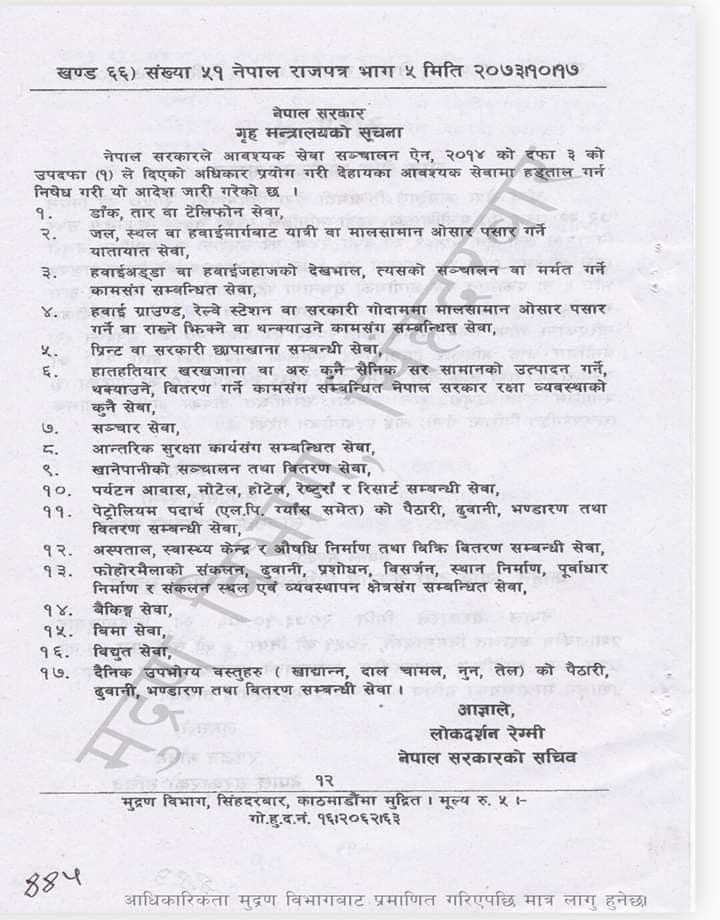 खण्ड ६६) संख्या ५१ नेपाल राजपत्र भाग ५ मिति २०७३।१०।१७
नेपाल सरकार
गृह मन्त्रालयको सूचना
नेपाल सरकारले आवश्यक सेवा सञ्चालन ऐन, २०१४ को दफा ३ को
उपदफा (१) ले दिएको अधिकार प्रयोग गरी देहायका आवश्यक सेवामा हड्ताल गर्न
निषेध गरी यो आदेश जारी गरेको छ ।
१. डाँक, तार वा टेलिफोन सेवा,
२. जल, स्थल वा हवाईमार्गबाट यात्री वा मालसामान ओसार पसार गर्ने
यातायात सेवा,
३. हवाईअड्डा वा हवाईजहाजको देखभाल, त्यसको सञ्चालन वा मर्मत गर्ने
कामसंग सम्बन्धित सेवा,
४. हवाई ग्राउण्ड, रेल्वे स्टेशन वा सरकारी गोदाममा मालसामान ओसार पसार
गर्ने वा राख्ने झिक्ने वा थन्क्याउने कामसंग सम्बन्धित सेवा,
५. प्रिन्ट वा सरकारी छापाखाना सम्बन्धी सेवा,
६. हातहतियार खरखजाना वा अरु कुनै सैनिक सर सामानको उत्पादन गर्ने,
थक्याउने, वितरण गर्ने कामसंग सम्बन्धित नेपाल सरकार रक्षा व्यवस्थाको
कुनै सेवा,
७. सञ्चार सेवा,
८. आन्तरिक सुरक्षा कार्यसंग सम्बन्धित सेवा,
९. खानेपानीको सञ्चालन तथा वितरण सेवा,
१०. पर्यटन आवास, मोटेल, होटेल, रेष्टुराँ र रिसार्ट सम्बन्धी सेवा,
११. पेट्रोलियम पदार्थ (एल.पि. ग्याँस समेत) को पैठारी, ढुवानी, भण्डारण तथा
वितरण सम्बन्धी सेवा,
१२. अस्पताल, स्वास्थ्य केन्द्र र औषधि निर्माण तथा विक्रि वितरण सम्बन्धी सेवा,
१३. फोहोरमैलाको संकलन, ढुवानी, प्रशोधन, विसर्जन, स्थान निर्माण, पूर्वाधार
निर्माण र संकलन स्थल एवं व्यवस्थापन क्षेत्रसंग सम्बन्धित सेवा,
१४. बैकिङ्ग सेवा,
१५. बिमा सेवा,
१६. विद्युत सेवा,
१७. दैनिक उपभोग्य वस्तुहरु ( खाद्यान्न, दाल चामल, नुन, तेल) को पैठारी,
ढुवानी, भण्डारण तथा वितरण सम्बन्धी सेवा ।
आज्ञाले,
लोकदर्शन रेग्मी
नेपाल सरकारको सचिव
१२
मुद्रण विभाग, सिंहदरबार, काठमाडौंमा मुद्रित । मूल्य रु. ५ ।-
गो.हु.द.नं. १६।२०६२।६३
मुद्रण विभाग, सिंहदरबार
884
आधिकारिकता मुद्रण विभागबाट प्रमाणित गरिएपछि मात्र लागु हुनेछ।